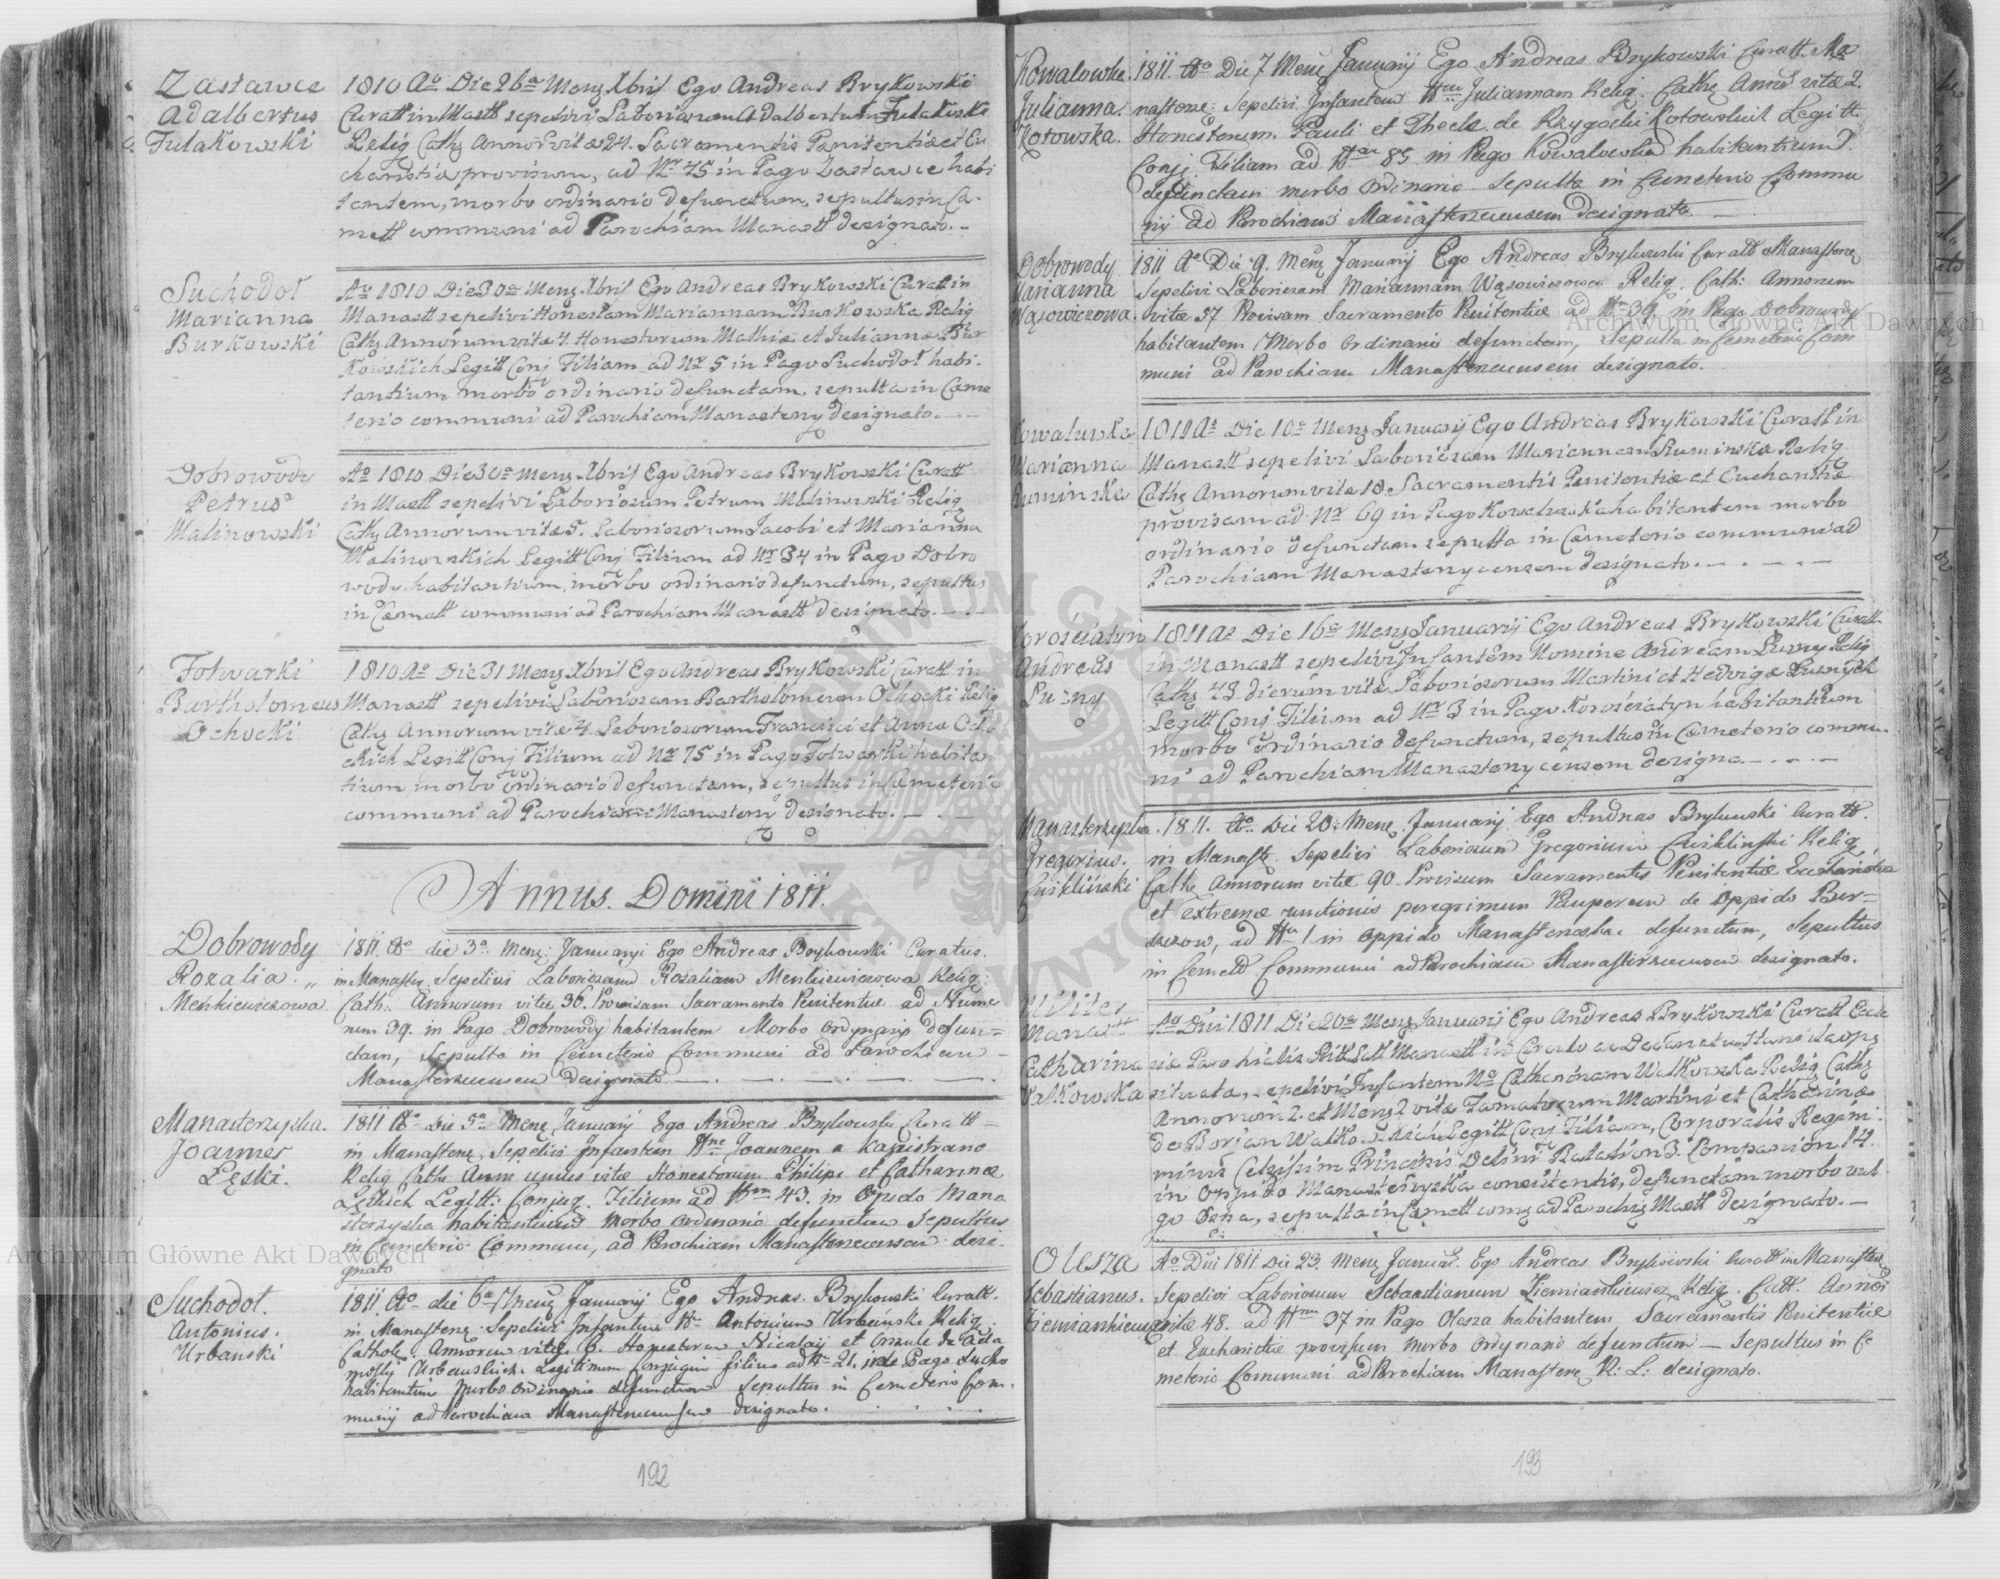 Zastawce
Adalbertus
Fulakowski
1810 Ao Die 26a Menz Xbris Ego Andreas Brykowski
Curatt in Mastt sepelivi Laboriosum Adalbertum Fulakoski
Relig Cathz Annor vitæ 24. Sacramentis Pœnitentiæ et Eu
charistiæ provisum, ad Nr 45 in Pago Zastawce habi
tantem, morbo ordinario defunctum, sepultus in Cæ-
mett communi ad Parochiam Manastt designato. -
Suchodoł
Marianna
Burkowski
Ao 1810 Die 30a Menz Xbris Ego Andreas Brykowski Curatt in
Manastt sepelivi Honestam Mariannam Burkowska Relig
Cathz Annorum vitæ 4. Honestorum Mathiæ et Juliannæ Bur
kowskich Legitt Conj Filiam ad Nr 5 in Pago Suchodoł habi-
tantium morbo ordinario defunctam, sepulta in Cæme
terio communi ad Parochiam Manasterz designato. - -
Dobrowody
Petrus
Malinowski
Ao 1810 Die 30a Menz Xbris Ego Andreas Brykowski Curatt
in Mastt sepelivi Laboriosum Petrum Malinowski Relig
Cathz Annorum vitæ 5. Laboriosorum Jacobi et Marianna
Malinowskich Legitt Conj Filium ad Nr 34 in Pago Dobro
wody habitantium, morbo ordinario defunctum, sepultus
in Cæmett communi ad Parochiam Manastt designato. - . -
Folwarki
Bartholomeus
Ochocki
1810 Ao Die 31 Menz Xbris Ego Andreas Brykowski Curatt in
Manastt sepelivi Laboriosum Bartholomeum Ochocki Relig
Cathz Annorum vitæ 4. Laboriosorum Francisci et Anna Ocho
ckich Legitt Conj Filium ad Nr 75 in Pago Folwarki habitan
tium, morbo ordinario defunctum, sepultus in Cæmeterio
communi ad Parochiam Manasterz designato. - . -
Annus Domini 1811.
Dobrowody
Rozalia
Menkiewiczowa
1811 Ao die 3a Menz Januarii Ego Andreas Brykowski Curatus.
in Manasterz Sepelivi Laboriosam Rozaliam Menkiewiczowa Relig:
Cath: Annorum vitæ 36. Provisam Sacramento Penitentiæ ad Nume
rum 39. in Pago Dobrowody habitantem Morbo Ordynario defun=
ctam, Sepulta in Cemeterio Communi ad Parochiam -
Manasterzecensem designato
Manasterzyska.
Joannes
Łęski.
1811 Ao Die 5a Menz January Ego Andreas Brykowski Curatt=
in Manasterz, Sepelivi Infantem Nne Joannem a
Relig Cathe Anni unius vitæ Honestorum Philipi et Catharinæ
Łęskich Legitt: Conjug. Filium ad Nrm 43. in Opido Mana
sterzyska habitantium Morbo Ordinario defunctum Sepultus
in Cemeterio Communi, ad Parochiam Manasterzecensem desi-
gnato
Suchodoł.
Antonius.
Urbanski
1811. Ao die 6a Menz January Ego Andreas Brykowski Curatt.
in Manasterz. Sepelivi Infantem Nne Antonium Urbański Relig:
Cathole Annorum vitæ 6. Honestorum Nicolaij et
Urbanskich Legitimum Conjugum filium ad Nr 21. in Pago Sucho
habitantium Morbo Ordinario defunctum Sepultus in Cemeterio Com.
munij ad Parochiam Manasterzecensem designato.
192
Kowalowka.
Julianna.
Kotowska.
1811. Ao Die 7 Menz January Ego Andreas Brykowski Curatt. Ma
nasterz: Sepelivi Infantem Nne Juliannam Relig. Cathe Annor vitæ 2.
Honestorum. Pauli et Theclæ de Rzygockie Kotowskich Legitt.
Conj: Filiam ad Nrm 85 in Pago Kowalowka habitantium
defunctam morbo Ordinario Sepulta in Cemeterio Commu
nij ad Parochiam Manasterzecensem designato
Dobrowody
Marianna
Wąsowiczowa.
1811 Ao Die 9. Menz January Ego Andreas Brykowski Curatt Manasterz
Sepelivi Laboriosam Mariannam Wąsowiczowa Relig. Cath: Annorum
vitæ 57 Provisam Sacramento Penitentiæ ad Nr 39 in Pago Dobrowody
habitantem Morbo Ordinario defunctam, Sepulta in Cemeterio Com
muni ad Parochiam Manasterzecensem designato.
Kowaluwka
Marianna
Ruminska
1811 Ao Die 10a Menz January Ego Andreas Brykowski Curatt in
Manastt sepelivi Laboriosam Mariannam Ruminska Relig
Cathz Annorum vitæ 18 Sacramentis Pœnitentiæ et Eucharistiæ
provisam ad Nr 69 in Pago Kowaluwka habitantem morbo
ordinario defunctam sepulta in Cæmeterio communi ad
Parochiam Manasterzycensem designato. - . - . -
Korościatyn
Andreas
Luzny
1811 Ao Die 16a Menz Januarij Ego Andreas Brykowski Curatt
in Manastt sepelivi Infantem Nomine Andream Luzny Relig
Cathz 43 dierum vitæ Laboriosorum Martini et Hedvigæ Luznych
Legitt Conj Filium ad Nr 3 in Pago Korościatyn habitantium
morbo ordinario defunctum, sepultus in Cæmeterio commu-
ni ad Parochiam Manasterzycensem designa - . - . -
Manasterzyska.
Gregorius.
Cwikliński
1811. Ao Die 20. Menz. January Ego Andreas Brykowski Curatt.
in Manastz. Sepelivi Laboriosum Gregorium Cwiklinski Relig
Cathe Annorum vitæ 90. Provisum Sacramentis Penitentiæ Eucharistiæ
et Extremæ unctionis peregrinum Pauperem de Oppido Bur=
sztzow, ad Nrm 1 in Oppido Manasterzyska defunctum, Sepultus
in Cemett Communi ad Parochiam Manasterzecensem designato.
Miles
Manastt
Catharina
Walkowska
Ao Dni 1811 Die 20a Menz Januarij Ego Andreas Brykowski Curatt Eccle
siæ Parochialis Ritt Latt Manastt in Circulo ac Decanatu Stanislaopz
situata, sepelivi Infantem No Catharinam Walkowska Relig Cathz
Annorum 2. et Menz 2 vitæ Famatorum Martini et Catherinæ
de Dorjan Walkowskich Legitt Conj Filiam, Corporalis Regimi
minis Celsissimi Principis Delini Batalion 3. Companion 14.
in Oppido Manasterzyska consistentis, defunctam morbo vul
go Ospa, sepulta in Cæmett comz ad Parochiz Mastt designato. -
Olesza
Sebastianus.
Ziemiankiewicz
Ao Dni 1811 Die 23. Menz Januar. Ego Andreas Brykowski Curatt in Manasterz
Sepelivi Laboriosum Sebastianum Ziemiankiewicz Relig. Cath. Annor
vitæ 48. ad Nrm 37 in Pago Olesza habitantem, Sacramentis Penitentiæ
et Eucharistiæ provisum Morbo Ordynario defunctum - Sepultus in Ce
meterio Communi ad Parochiam Manasterz R: L: designato.
193
Archiwum Główne Akt Dawnych
Archiwum Główne Akt Dawnych